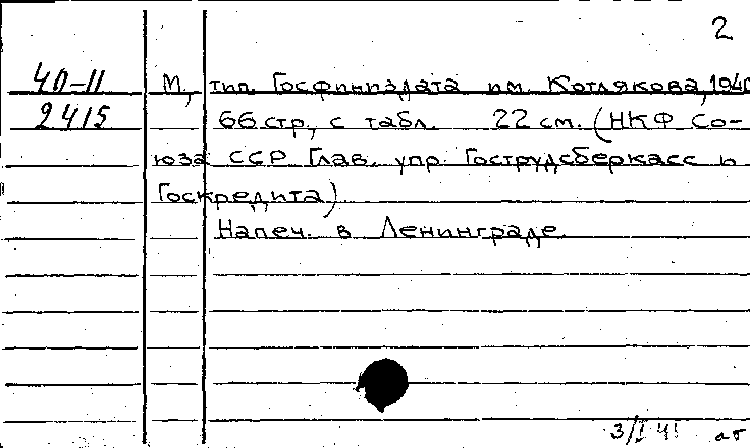 2
40-11 М., тип. Госфиниздата им. Котлякова, 1940
2415 66 стр., с табл. 22 см. (НКФ Со-
юза ССР Глав. упр. Гострудсберкасс и
Госкредита)
Напеч. в Ленинграде.
3/I 41 аб